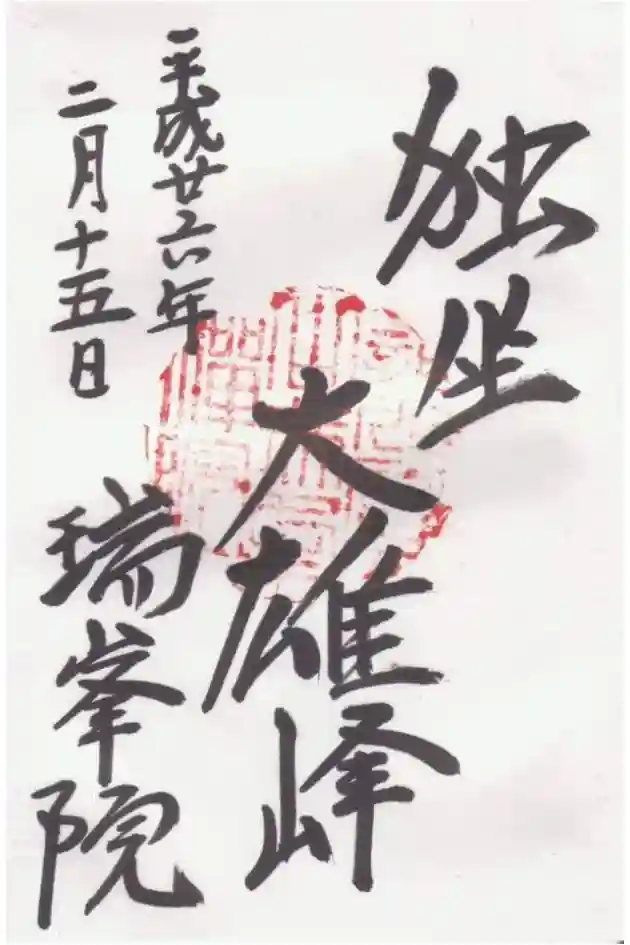 独坐
大雄峰
平成廿六年
二月十五日
瑞峯院